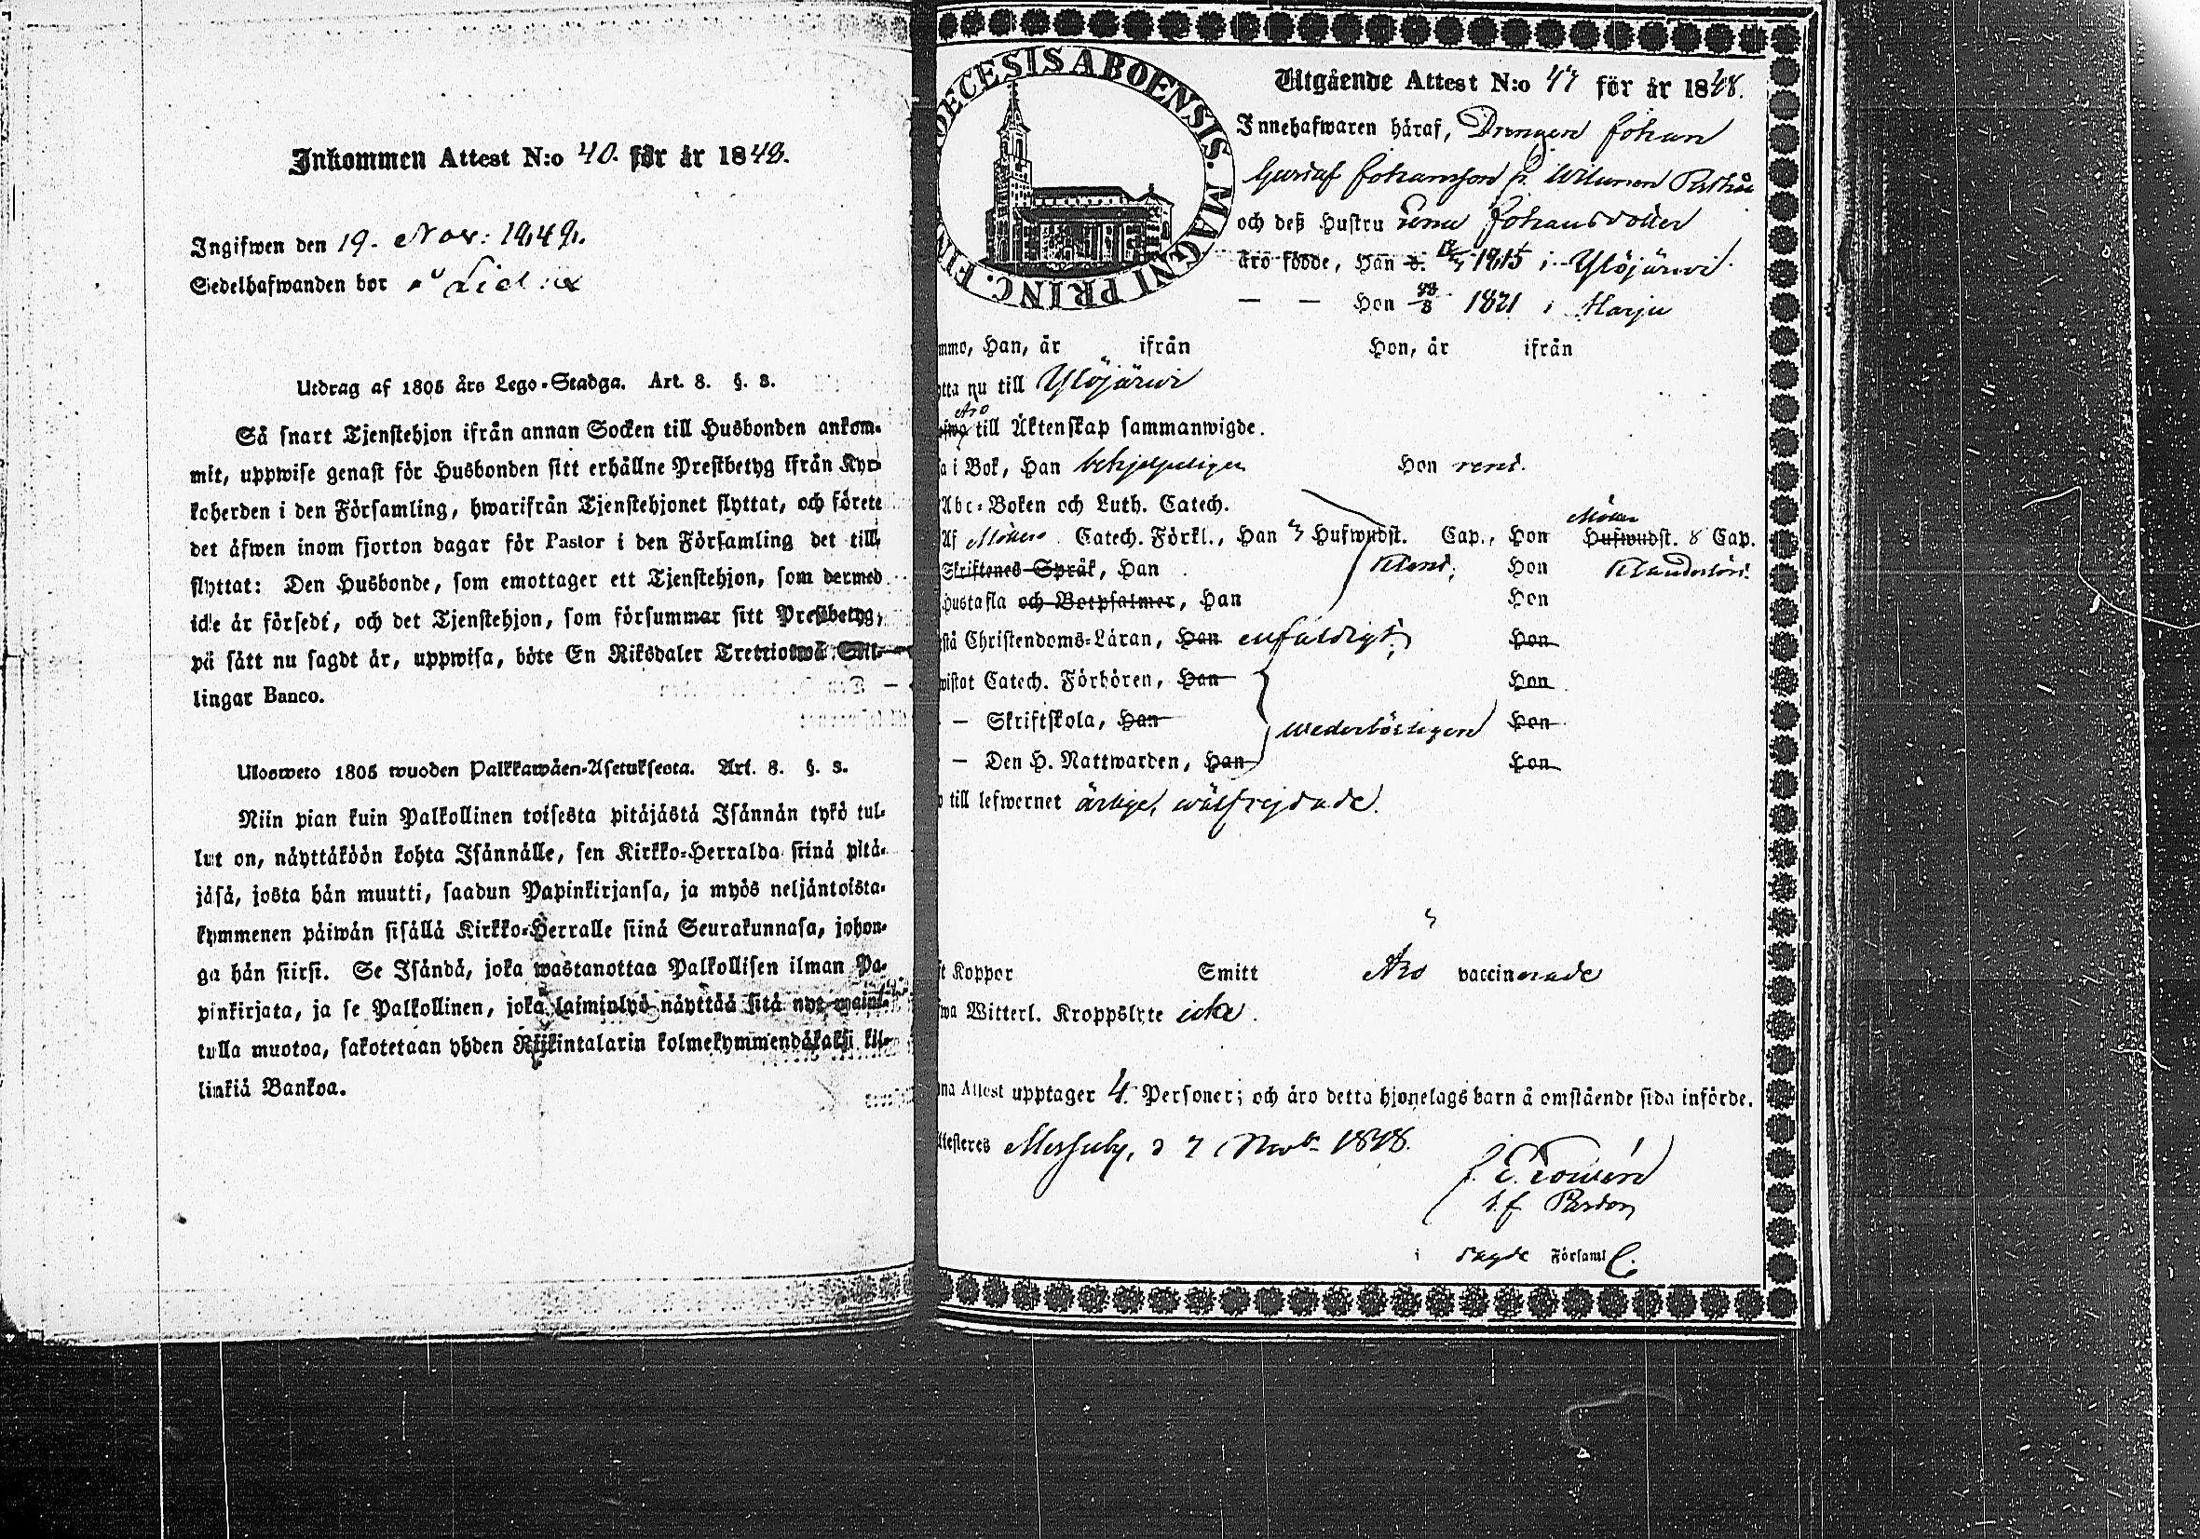 Inkommen Attest N:o 40. för år 1848.
Ingifwen den 19. Nov: 1848.
Sedelhafwanden bor
Utdrag af 1805 års Lego-Stadga. Art. 8. §. 3.
Så snart Tjenstehjon ifrån annan Socken till Husbonden ankom-
mit, uppwise genast för Husbonden sitt erhållne Prestbetyg ifrån Kyr-
koherden i den Församling, hwarifrån Tjenstehjonet flyttat, och förete
det äfwen inom fjorton dagar för Pastor i den Församling det till
flyttat: Den Husbonde, som emottager ett Tjenstehjon, som dermed
icke är försedt, och det Tjenstehjon, som försummar sitt Prestbetyg,
på sätt nu sagdt är, uppwisa, böte En Riksdaler Trettiotwå Skil-
lingar Banco.
Ulosweto 1805 wuoden Palkkawäen-Asetuksesta. Art. 8. §. 3.
Niin pian kuin Palkollinen toisesta pitäjästä Isännän tykö tul-
lut on, näyttäköön kohta Isännälle, sen Kirkko-Herralda siinä pitä-
jäsä, josta hän muutti, saadun Papinkirjansa, ja myös neljäntoista-
kymmenen päiwän sisällä Kirkko-Herralle siinä Seurakunnasa, johon-
ga hän siirsi. Se Isändä, joka wastanottaa Palkollisen ilman Pa-
pinkirjata, ja se Palkollinen, joka laiminlyö näyttää sitä nyt mainit-
tulla muotoa, sakotetaan yhden Riikintalarin kolmekymmendäkaksi kil-
linkiä Bankoa.
DIOECESIS ABOENSIS. MAGNI PRINC. FIN
Utgående Attest N:o 47 för år 1848.
Innehafwaren häraf, Drengen Johan
Gustaf Johansson fr. Pirkkala
och deß Hustru Lena Johansdotter
äro födde, Han d. 1815 i Ylöjärwi.
— — Hon 1821 i Harju
mmo, Han, år ifrån Hon, år ifrån
tta nu till Ylöjärwi
Äro
till Äktenskap sammanwigde.
sa i Bok, Han behjelpeligen Hon rent.
Abc-Boken och Luth. Catech.
Möller
Af Möllers Catech. Förkl., Han 3 Hufwudst. Cap., Hon Hufwudst. 8 Cap.
Skriftenes Språk, Han Hon
Hustafla och Botpsalmer, Han Hon
stå Christendoms-Läran, Han enfaldigt; Hon
wistat Catech. Förhören, Han Hon
— Skriftskola, Han wederbörligen Hon
— Den H. Nattwarden, Han Hon
till lefwernet ärlige, wälfrejdade.
ft Koppor Smitt Äro vaccinerade
wa Witterl. Kroppslyte icke.
na Attest upptager 4 Personer; och äro detta hjonelags barn å omstående sida införde.
Attesteres Messuby, d 7 Novbr 1848.
t.f. Pastor
i sagde Församl.